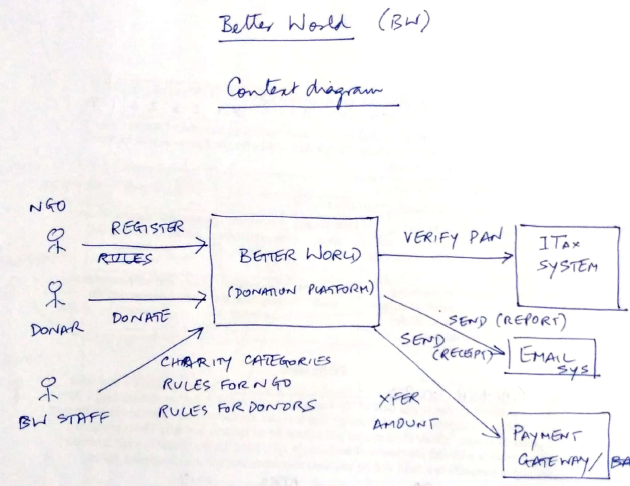 Better World (BW)
Context diagram
NGO
REGISTER
RULES
DONAR
DONATE
BW STAFF
CHARITY CATEGORIES
RULES FOR NGO
RULES FOR DONORS
BETTER WORLD
(DONATION PLATFORM)
VERIFY PAN
ITax
SYSTEM
SEND (REPORT)
SEND
(RECEPT)
EMAIL
SYS
XFER
AMOUNT
PAYMENT
GATEWAY/ BA